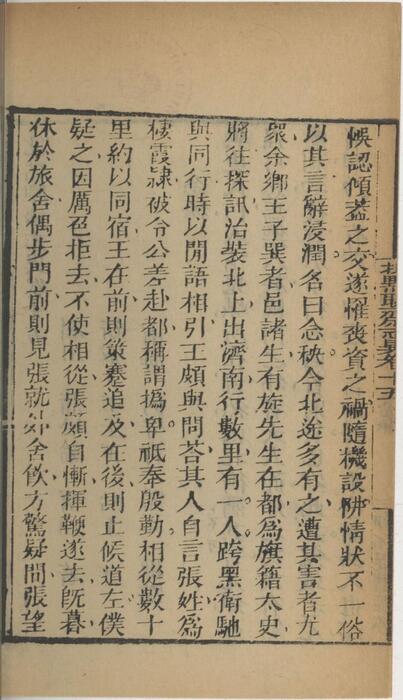 悞認傾葢之交遂懼喪資之禍隨機設阱情狀不一俗
以其言辭浸潤名曰念秧今北途多有之遭其害者尤
衆余鄉王子巽者邑諸生有旋先生在都爲旗籍太史
將往探訊治裝北上出濟南行數里有一人跨黑衛馳
與同行時以閒語相引王頗與問荅其人自言張姓爲
棲霞隷被令公差赴都稱謂撝卑祇奉殷勤相從數十
里約以同宿王在前則策蹇追及在後則止候道左僕
疑之因厲色拒去不使相從張頗自慚揮鞭遂去旣暮
休於旅舍偶步門前則見張就外舍飲方驚疑間張望
卷十五